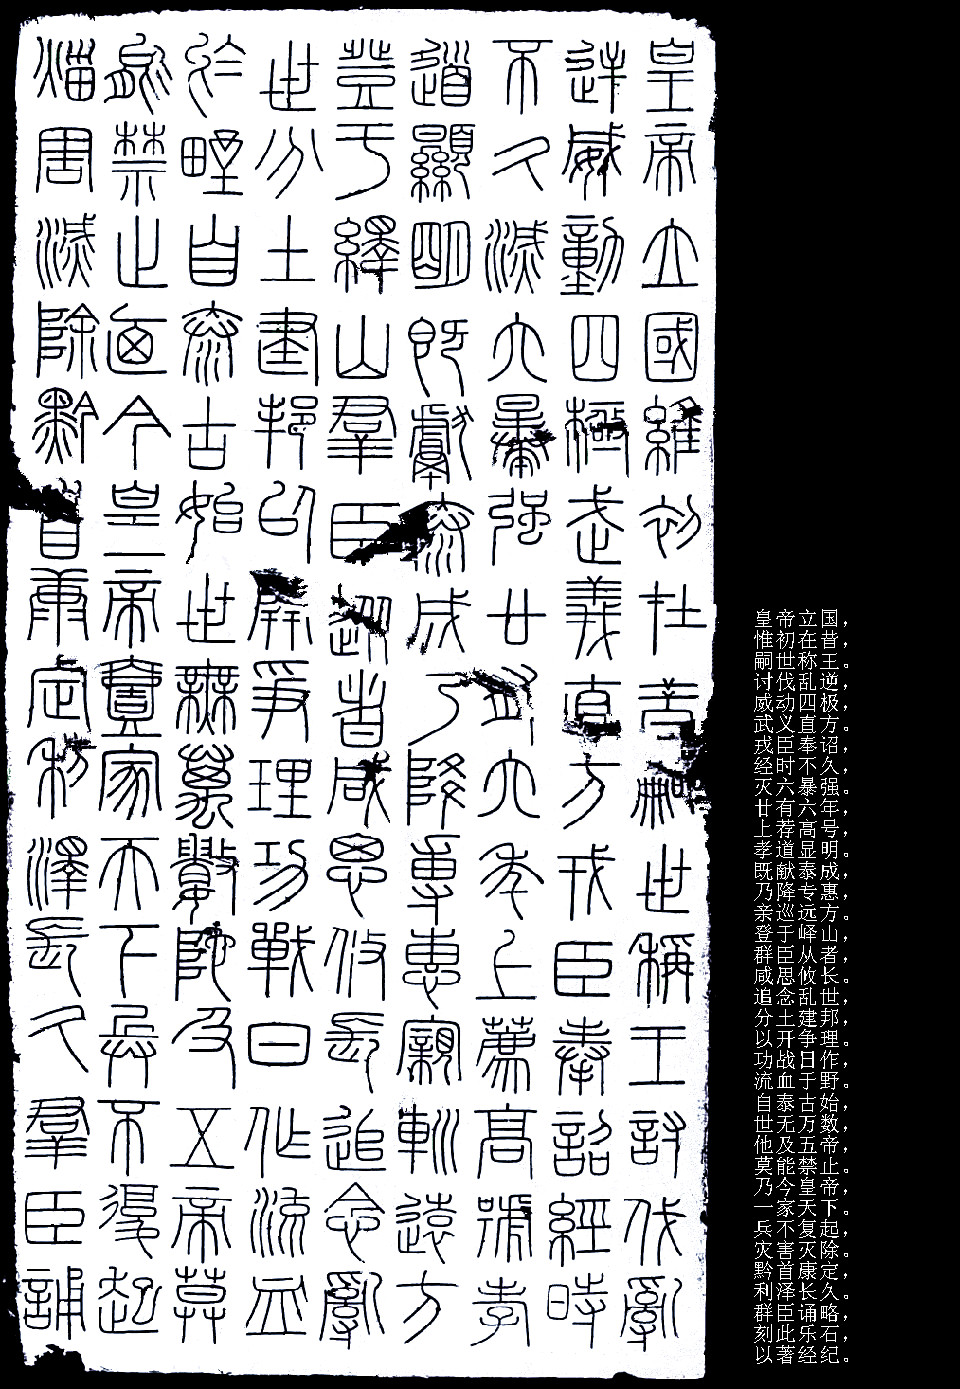 皇帝立國維初在昔嗣世稱王討伐亂
逆威動四極武義直方戎臣奉詔經時
不久滅六暴强廿有六年上薦高號孝
道顯明既獻泰成乃降專惠親巡遠方
登于繹山羣臣從者咸思攸長追念亂
世分土建邦以開爭理功戰日作流血
於野自泰古始世無萬數陀及五帝莫
能禁止廼今皇帝壹家天下兵不復起
烖害滅除黔首康定利澤長久羣臣誦
皇帝立国，
惟初在昔，
嗣世称王。
讨伐乱逆，
威动四极，
武义直方。
戎臣奉诏，
经时不久，
灭六暴强。
廿有六年，
上荐高号，
孝道显明。
既献泰成，
乃降专惠，
亲巡远方。
登于峄山，
群臣从者，
咸思攸长。
追念乱世，
分土建邦，
以开争理。
功战日作，
流血于野。
自泰古始，
世无万数，
他及五帝，
莫能禁止。
乃今皇帝，
一家天下。
兵不复起，
灾害灭除。
黔首康定，
利泽长久。
群臣诵略，
刻此乐石，
以著经纪。